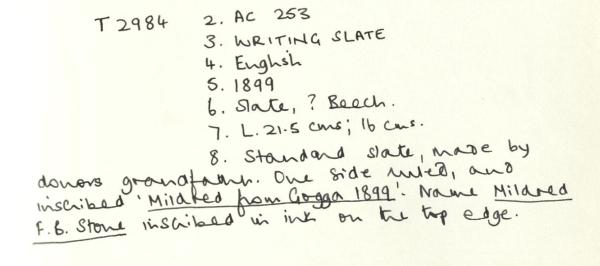 T 2984 2. AC 253
3. WRITING SLATE
4. English
5. 1899
6. Slate, ? Beech.
7. L. 21.5 cms; 16 cms.
8. Standard slate, made by
donors grandfather. One side ruled, and
inscribed 'Mildred from Gogga 1899'. Name Mildred
F.B. Stone inscribed in ink on the top edge.